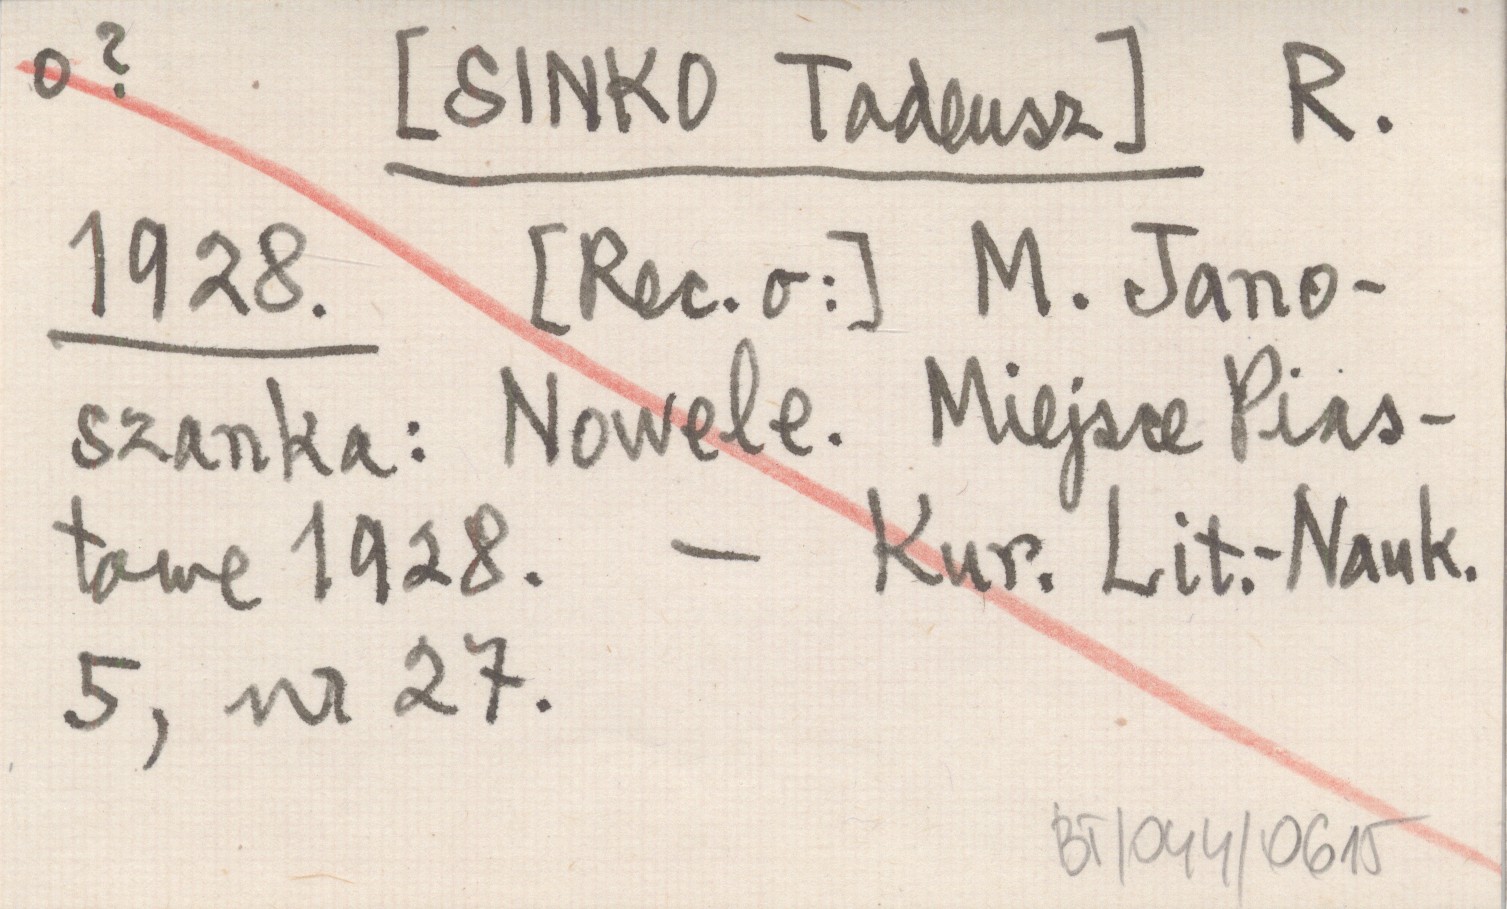 o? [SINKO Tadeusz] R.
1928. [Rec. o:] M. Jano-
szanka: Nowele. Miejsce Pias-
towe 1928. — Kur. Lit.-Nauk.
5, nr 27.
BT/044/0615